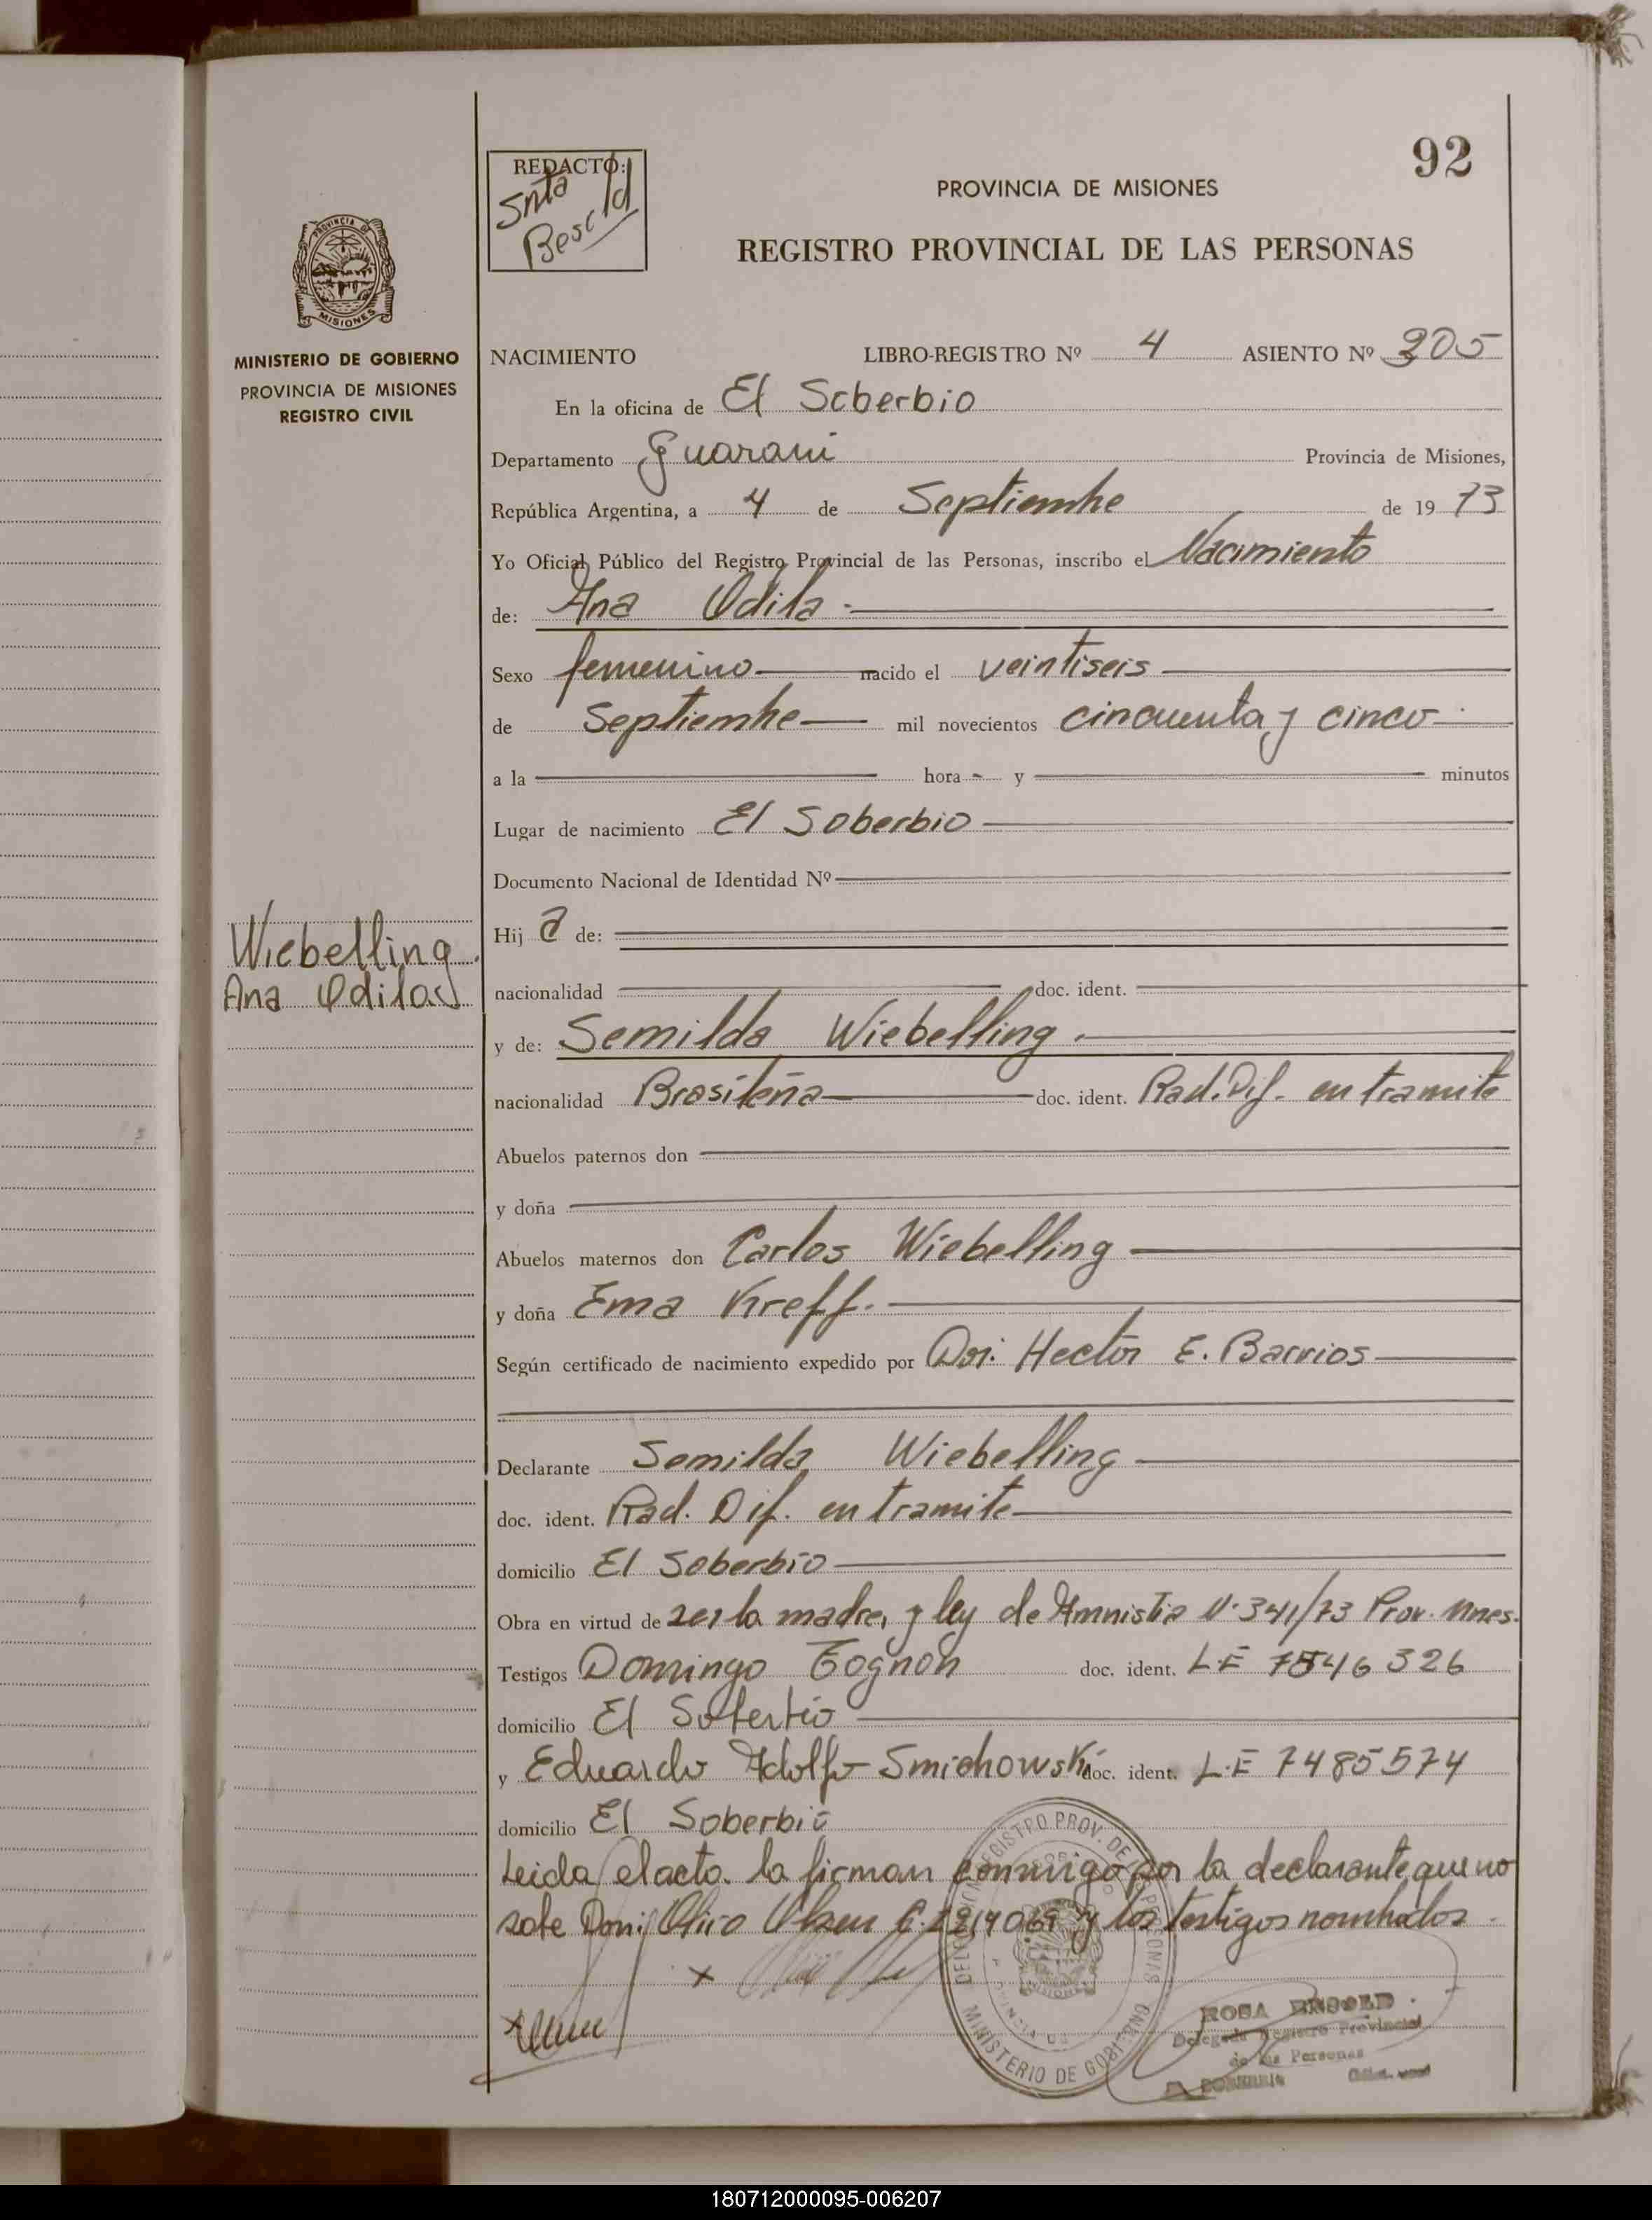 92
REDACTO:
Snta
PROVINCIA DE MISIONES
REGISTRO PROVINCIAL DE LAS PERSONAS
PROVINCIA DE
MISIONES
MINISTERIO DE GOBIERNO
PROVINCIA DE MISIONES
REGISTRO CIVIL
NACIMIENTO LIBRO-REGISTRO Nº 4 ASIENTO Nº 205
En la oficina de El Soberbio
Departamento Guarani Provincia de Misiones,
República Argentina, a 4 de Septiembre de 19 73
Yo Oficial Público del Registro Provincial de las Personas, inscribo el Nacimiento
de: Ana Odila
Sexo femenino nacido el veintiseis
de Septiembre mil novecientos cincuenta y cinco
a la hora y minutos
Lugar de nacimiento El Soberbio
Documento Nacional de Identidad Nº
Wiebelling
Ana Odila
Hij a de:
nacionalidad doc. ident.
y de: Semilda Wiebelling
nacionalidad Brasileña doc. ident. Rad. Dif. en tramite
Abuelos paternos don
y doña
Abuelos maternos don Carlos Wiebelling
y doña Ema Kreff.
Según certificado de nacimiento expedido por Dor. Hector E. Barrios
Declarante Semilda Wiebelling
doc. ident. Rad. Dif. en tramite
domicilio El Soberbio
Obra en virtud de ser la madre, y ley de Amnistia N. 341/73 Prov. Mnes.
Testigos Domingo Tognon doc. ident. L.E 7546326
domicilio El Soberbio
y Eduardo Adolfo Smichowski doc. ident. L.E 7485574
domicilio El Soberbio
Leida el acta la firman conmigo por la declarante que no
sabe Don: y los testigos nombrados
REGISTRO PROV. DE LAS PERSONAS
MINISTERIO DE GOBIERNO
ROSA
Delegada Registro Provincial
de las Personas
SOBERBIO
180712000095-006207